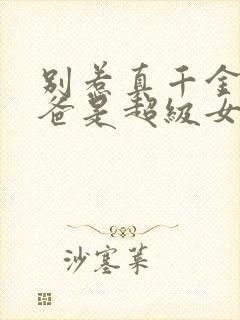 别惹真千金
爸是超级女
沙塞菓